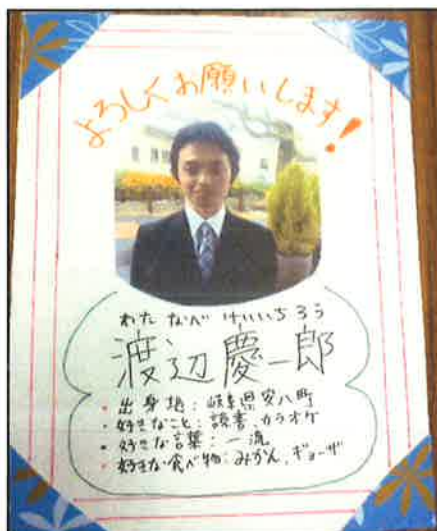 よろしくお願いします!
わたなべ けいいちろう
渡辺慶一郎
・出身地:岐阜県安八町
・好きなこと:読書・カラオケ
・好きな言葉:一流
・好きな食べ物:みかん、ギョーザ